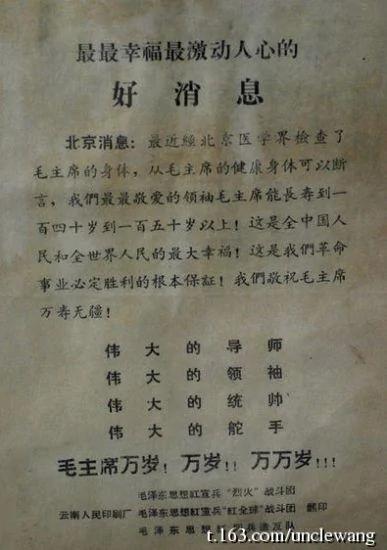 最最幸福最激动人心的
好消息
北京消息：最近經北京医学界檢查了
毛主席的身体，从毛主席的健康身体可以断
言，我們最最敬爱的领袖毛主席能長寿到一
百四十岁到一百五十岁以上！这是全中国人
民和全世界人民的最大幸福！这是我們革命
事业必定胜利的根本保証！我們敬祝毛主席
万寿无疆！
伟大的导师
伟大的领袖
伟大的统帅
伟大的舵手
毛主席万岁！万岁！！万万岁！！！
毛泽东思想紅宣兵“烈火”战斗团
云南人民印刷厂 毛泽东思想紅宣兵“紅全球”战斗团 翻印
毛泽东思想紅 队
t.163.com/unclewang